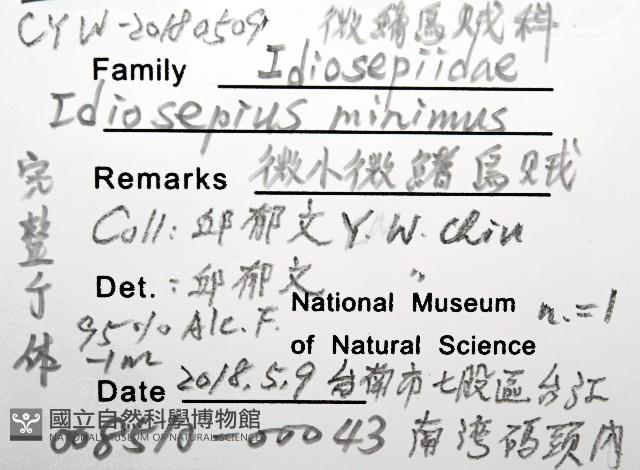 CYW-20180509 微鰭烏賊科
Family Idiosepiidae
Idiosepius minimus
Remarks 微小微鰭烏賊
完整个体
Coll: 邱郁文 Y. W. Chiu
Det. : 邱郁文 "
National Museum of Natural Science
n.=1
95% Alc. F.
Date 2018.5.9 台南市七股區台江
南湾碼頭内
國立自然科學博物館
NATIONAL MUSEUM OF NATURAL SCIENCE
00043